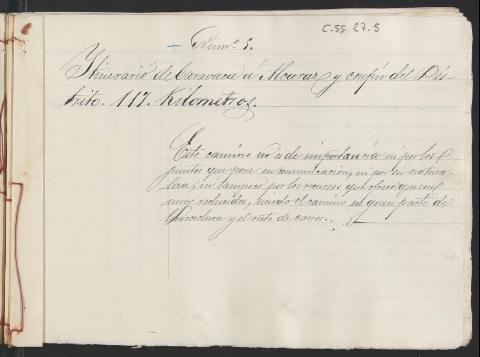 Num.º 5.
C.55 27.5
Itinerario de Caravaca á Alcaraz y confin del Dis-
trito. 117. Kilometros.
Este camino no es de importancia ni por los
puntos que pone en comunicacion, ni por su natura-
leza, ni tampoco por los recursos que ofrece que son
muy reducidos, siendo el camino en gran parte de
herradura y el resto de carros.